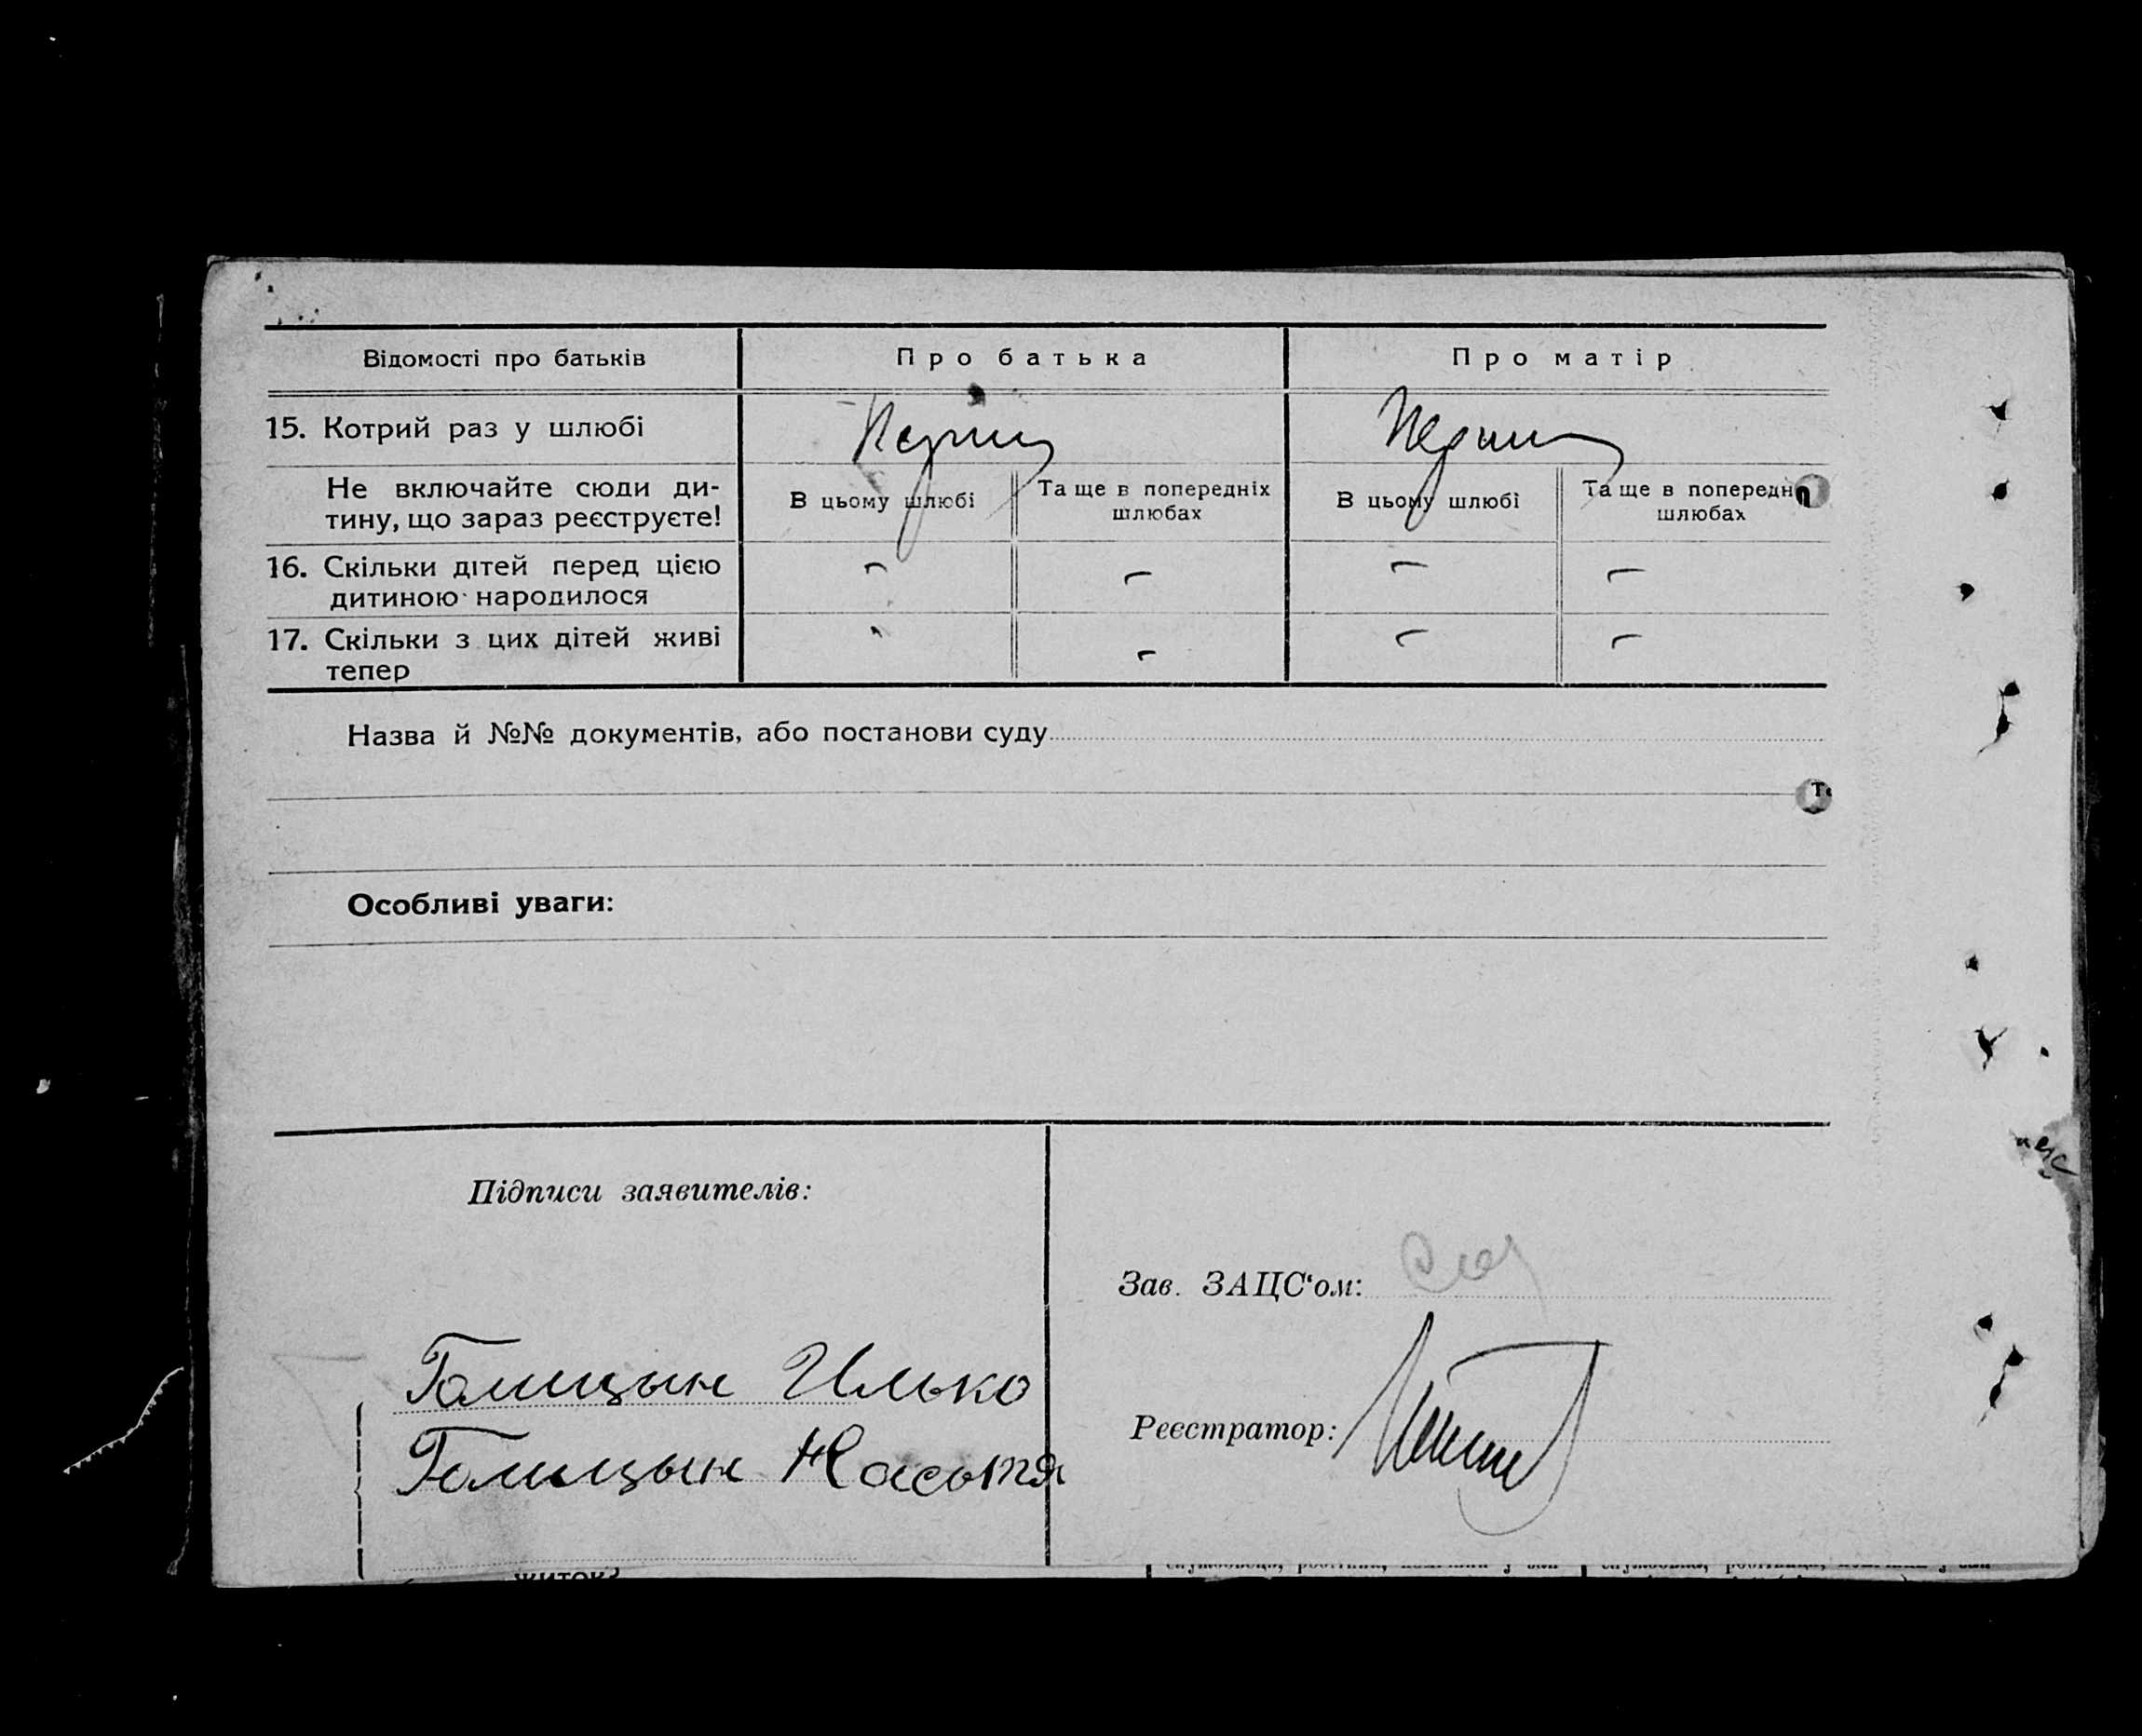 Відомості про батьків
Про батька
Про матір
15. Котрий раз у шлюбі
Перший
Перший
Не включайте сюди ди-
тину, що зараз реєструєте!
В цьому шлюбі
Та ще в попередніх
шлюбах
В цьому шлюбі
Та ще в попередн
шлюбах
16. Скільки дітей перед цією
дитиною народилося
– – – –
17. Скільки з цих дітей живі
тепер
– – –
Назва й №№ документів, або постанови суду
Особливі уваги:
Підписи заявителів:
Зав. ЗАЦС‘ом:
Голицын Илько
Реєстратор:
Голицын Насьтя
житок?